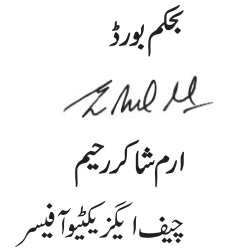 بحکم بورڈ
ارم شاکر رحیم
چیف ایگزیکٹیو آفیسر